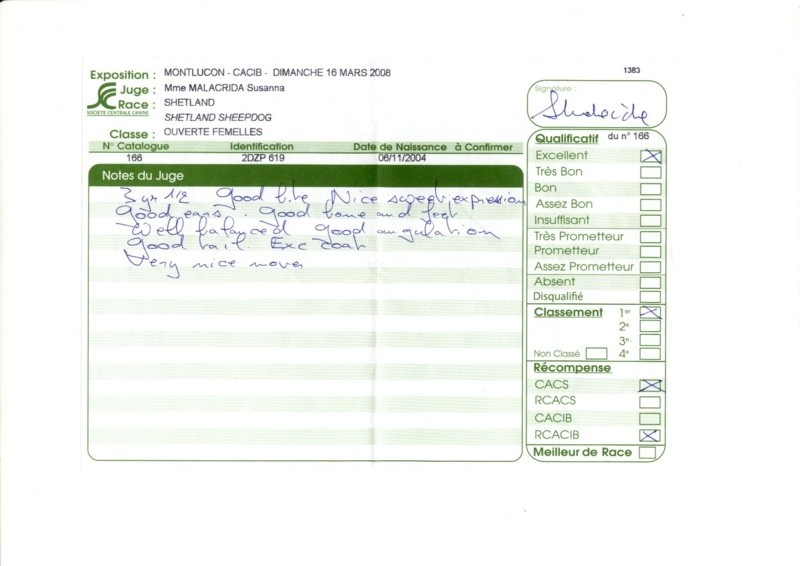 1383
Exposition : MONTLUCON - CACIB - DIMANCHE 16 MARS 2008
Juge : Mme MALACRIDA Susanna
Race : SHETLAND
SOCIETE CENTRALE CANINE
SHETLAND SHEEPDOG
Classe : OUVERTE FEMELLES
N° Catalogue Identification Date de Naissance à Confirmer
166 2DZP 619 06/11/2004
Notes du Juge
3 yr 1/2 Good bite Nice sweet expression
Good ears . Good bone and feet
Well balanced good angulation
Good tail. Exc coat
Very nice mover
Signature :
Qualificatif du n° 166
Excellent
Très Bon
Bon
Assez Bon
Insuffisant
Très Prometteur
Prometteur
Assez Prometteur
Absent
Disqualifié
Classement 1er
2e
3e
Non Classé 4e
Récompense
CACS
RCACS
CACIB
RCACIB
Meilleur de Race